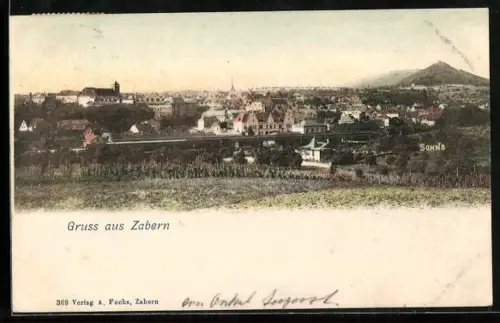 SONNE
Gruss aus Zabern
369 Verlag A. Fuchs, Zabern
von Onkel